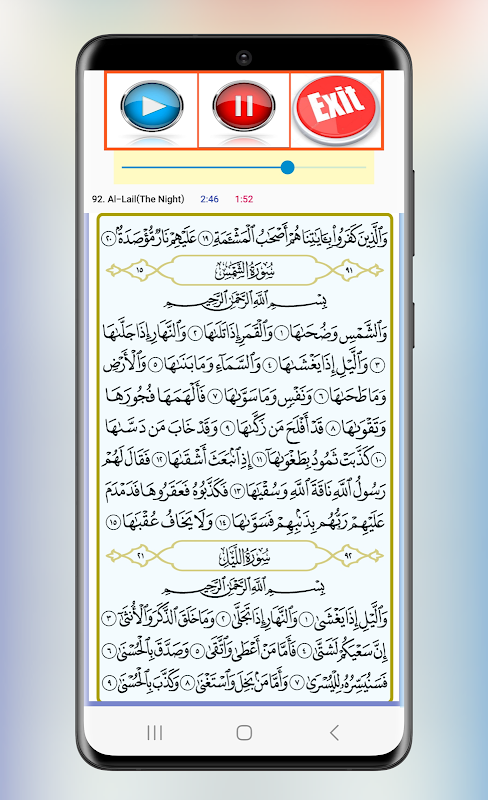 Exit
92. Al-Lail(The Night) 2:46 1:52
وَالَّذِينَ كَفَرُوا بِـَٔايَٰتِنَا هُمْ أَصْحَٰبُ الْمَشْـَٔمَةِ ١٩ عَلَيْهِمْ نَارٌ مُّؤْصَدَةٌ ٢٠
٩١ سُورَةُ الشَّمْسِ ١٥
بِسْمِ اللَّهِ الرَّحْمَٰنِ الرَّحِيمِ
وَالشَّمْسِ وَضُحَىٰهَا ١ وَالْقَمَرِ إِذَا تَلَىٰهَا ٢ وَالنَّهَارِ إِذَا جَلَّىٰهَا
٣ وَالَّيْلِ إِذَا يَغْشَىٰهَا ٤ وَالسَّمَآءِ وَمَا بَنَىٰهَا ٥ وَالْأَرْضِ
وَمَا طَحَىٰهَا ٦ وَنَفْسٍ وَمَا سَوَّىٰهَا ٧ فَأَلْهَمَهَا فُجُورَهَا
وَتَقْوَىٰهَا ٨ قَدْ أَفْلَحَ مَن زَكَّىٰهَا ٩ وَقَدْ خَابَ مَن دَسَّىٰهَا
١٠ كَذَّبَتْ ثَمُودُ بِطَغْوَىٰهَآ ١١ إِذِ انۢبَعَثَ أَشْقَىٰهَا ١٢ فَقَالَ لَهُمْ
رَسُولُ اللَّهِ نَاقَةَ اللَّهِ وَسُقْيَٰهَا ١٣ فَكَذَّبُوهُ فَعَقَرُوهَا فَدَمْدَمَ
عَلَيْهِمْ رَبُّهُم بِذَنۢبِهِمْ فَسَوَّىٰهَا ١٤ وَلَا يَخَافُ عُقْبَٰهَا ١٥
٩٢ سُورَةُ اللَّيْلِ ٢١
بِسْمِ اللَّهِ الرَّحْمَٰنِ الرَّحِيمِ
وَالَّيْلِ إِذَا يَغْشَىٰ ١ وَالنَّهَارِ إِذَا تَجَلَّىٰ ٢ وَمَا خَلَقَ الذَّكَرَ وَالْأُنثَىٰٓ ٣
إِنَّ سَعْيَكُمْ لَشَتَّىٰ ٤ فَأَمَّا مَنْ أَعْطَىٰ وَاتَّقَىٰ ٥ وَصَدَّقَ بِالْحُسْنَىٰ ٦
فَسَنُيَسِّرُهُۥ لِلْيُسْرَىٰ ٧ وَأَمَّا مَنۢ بَخِلَ وَاسْتَغْنَىٰ ٨ وَكَذَّبَ بِالْحُسْنَىٰ ٩